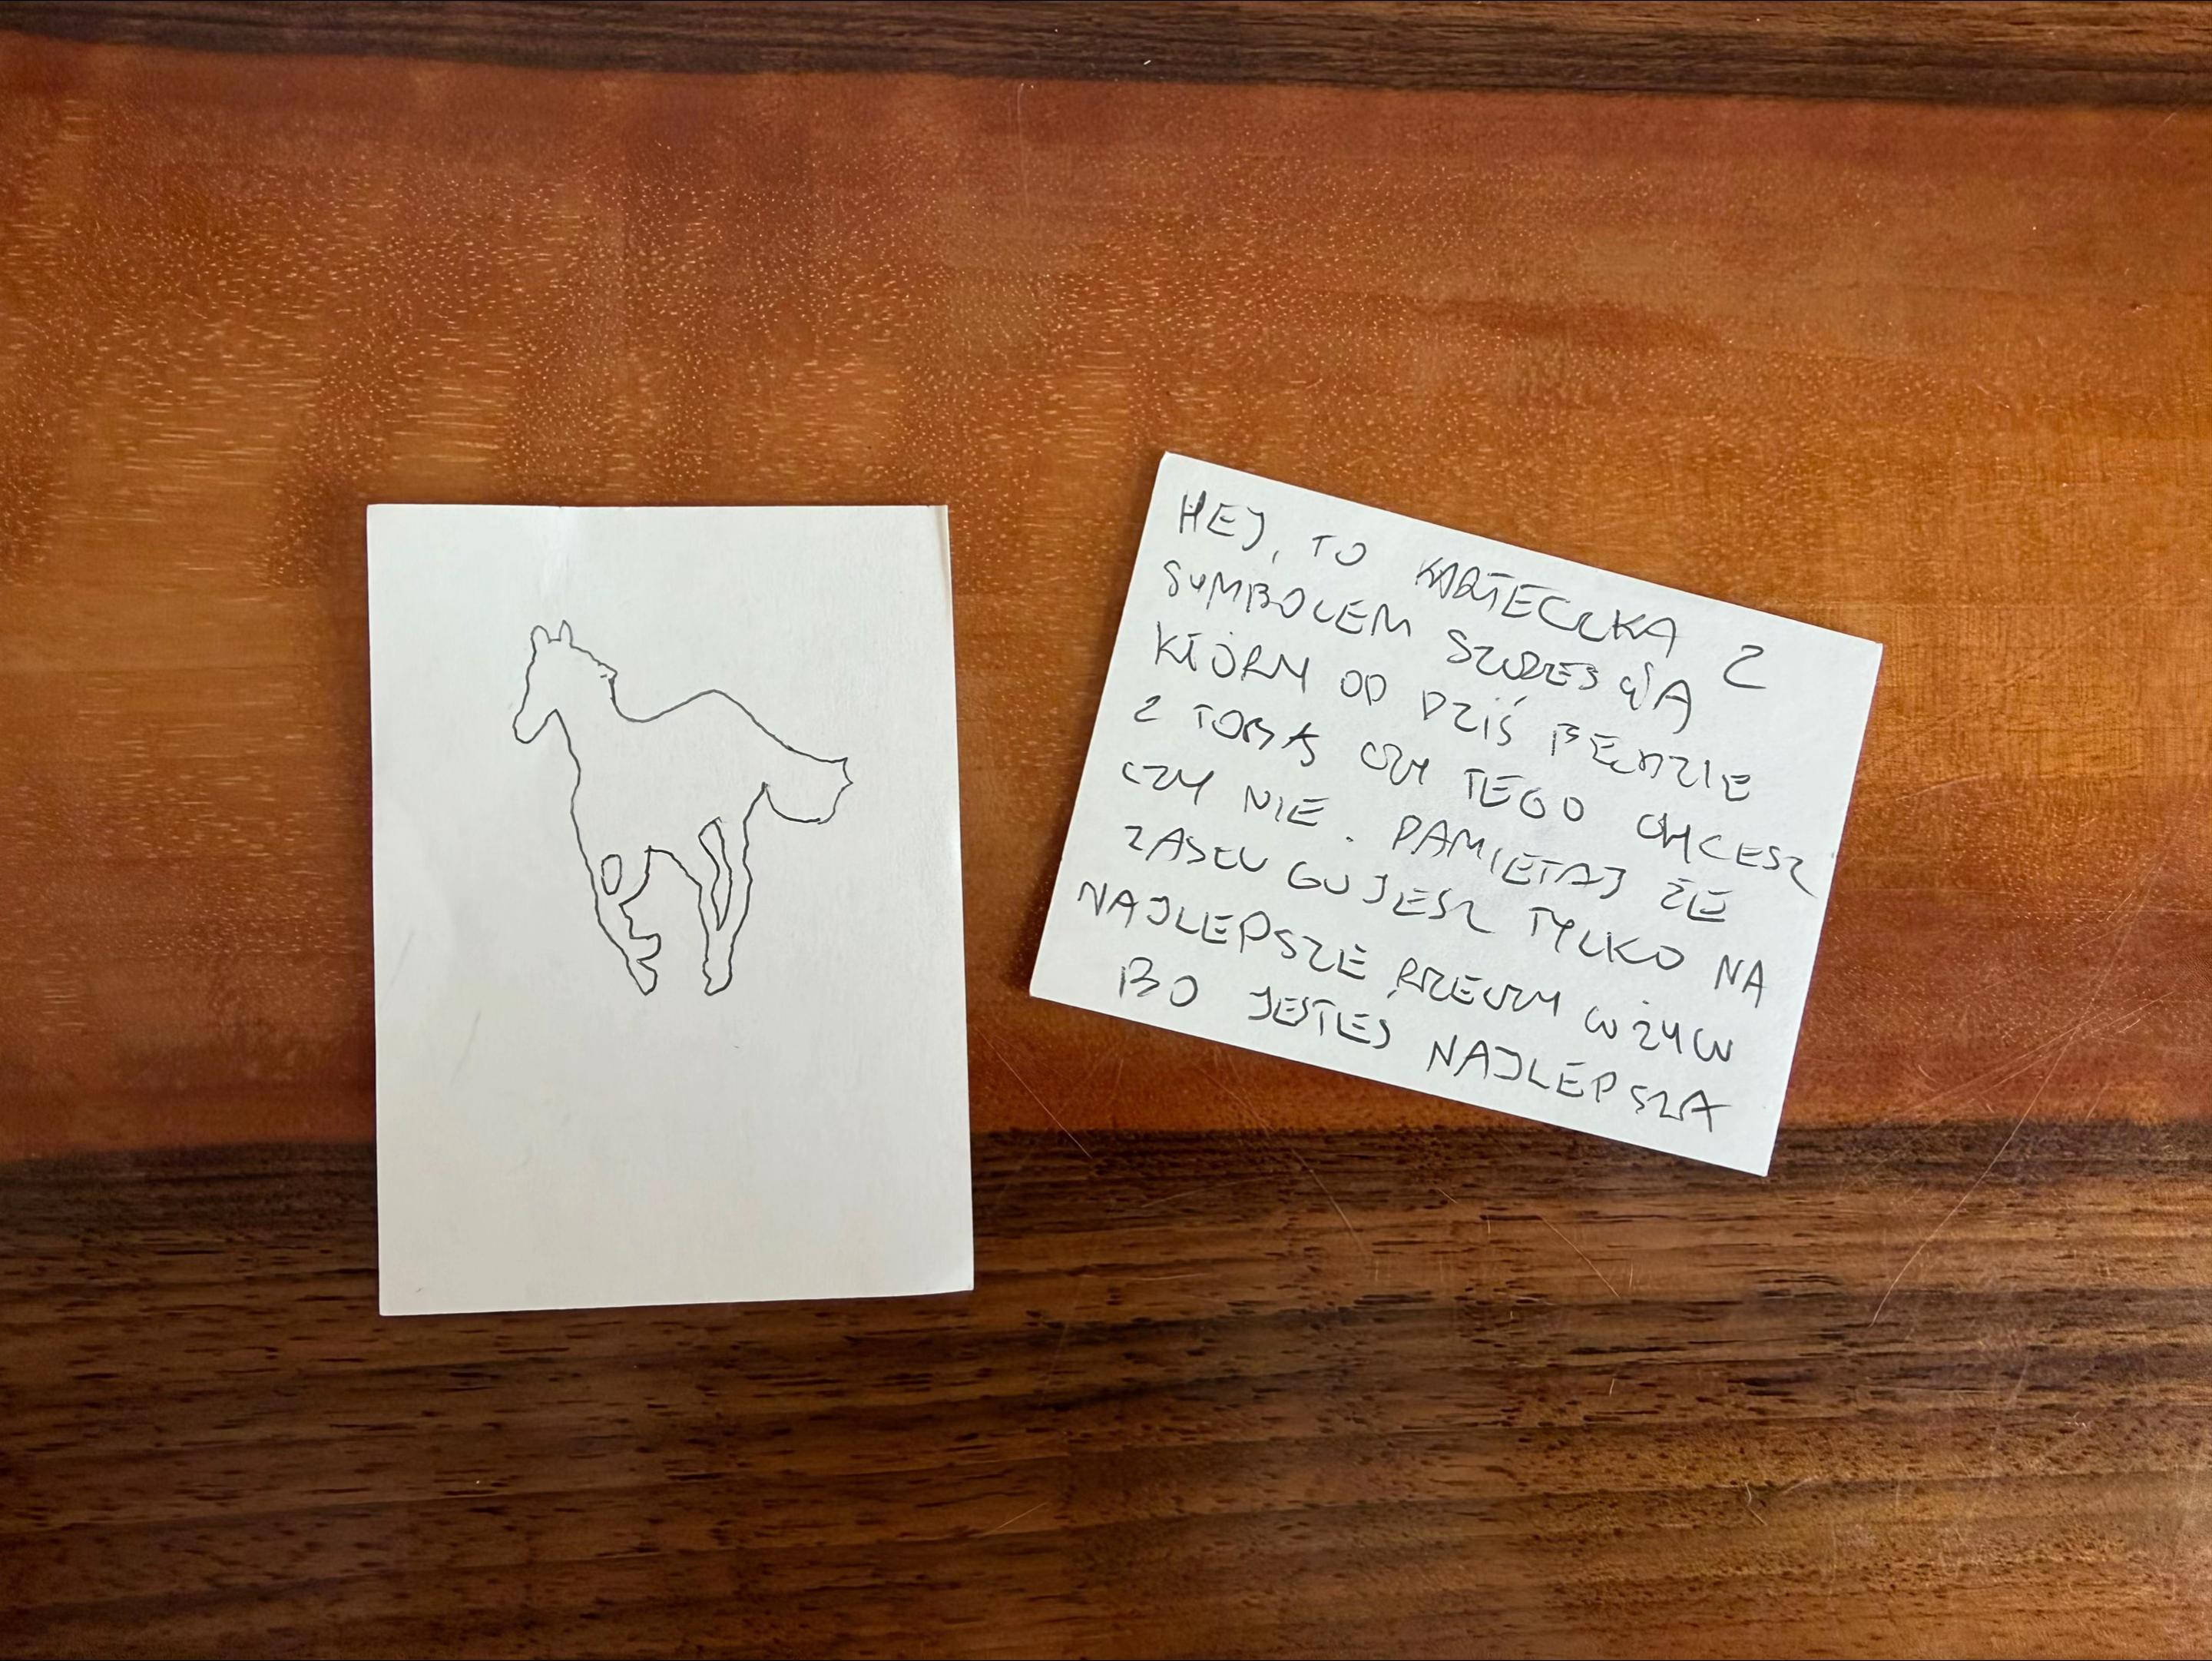 HEJ, TO KARTECZKA Z
SYMBOLEM SZCZĘŚCIA
KTÓRY OD DZIŚ BĘDZIE
Z TOBĄ CZY TEGO CHCESZ
CZY NIE. PAMIĘTAJ ŻE
ZASŁUGUJESZ TYLKO NA
NAJLEPSZE RZECZY W ŻYCIU
BO JESTEŚ NAJLEPSZA